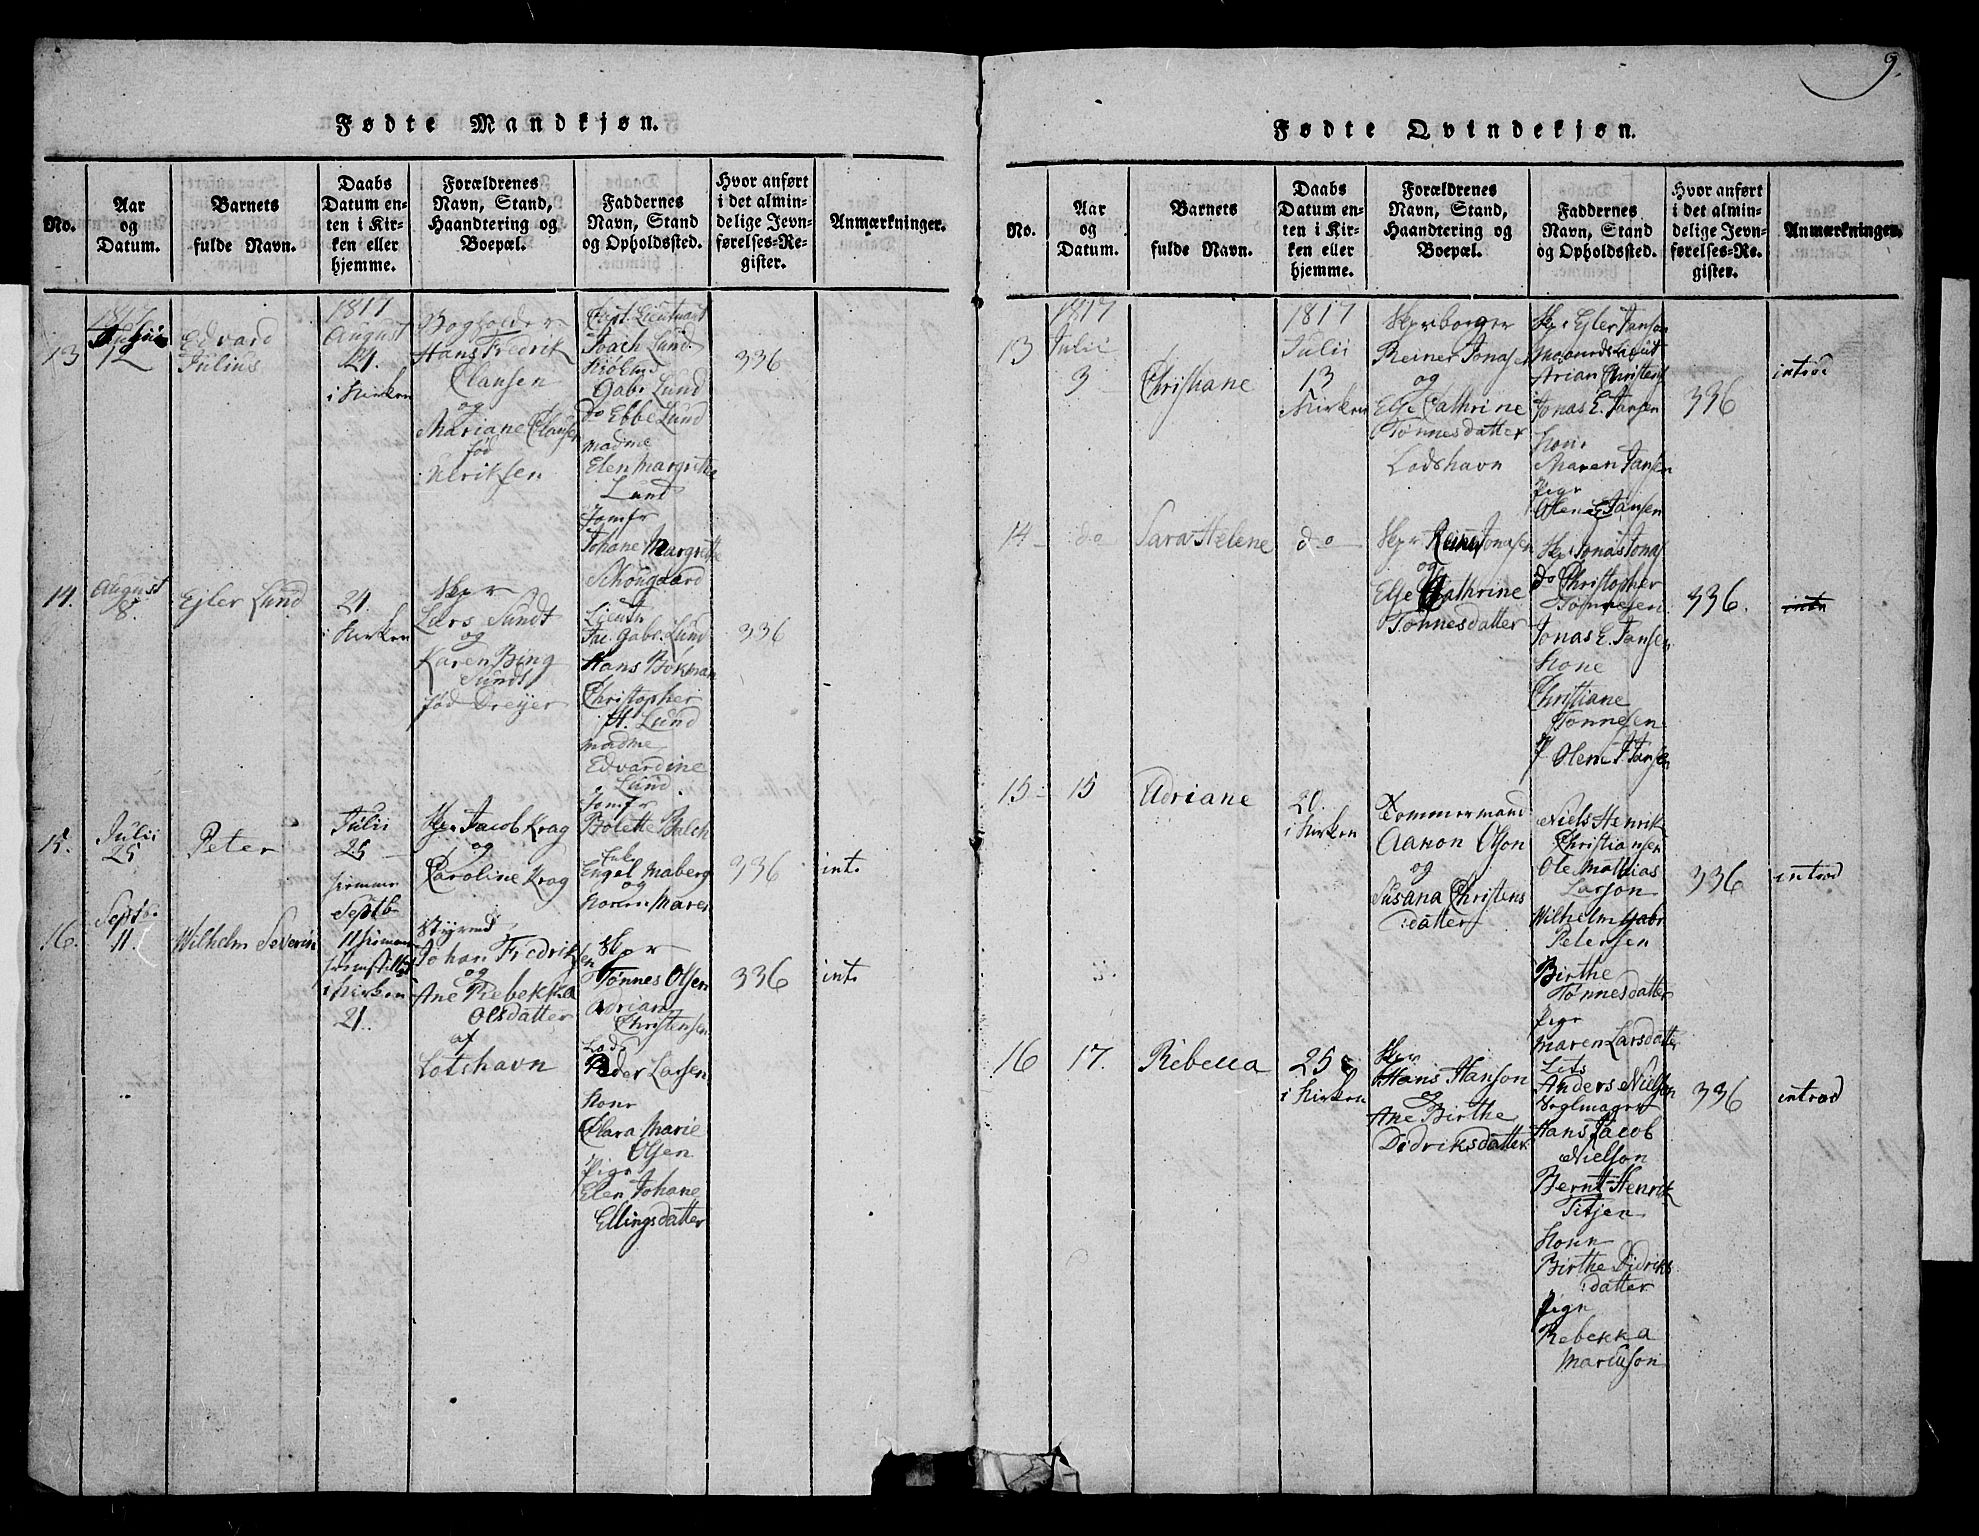 9.
Fødte Mandkjøn.
No.
Aar
og
Datum.
Barnets
fulde Navn.
Daabs
Datum en-
ten i Kir-
ken eller
hjemme.
Forældrenes
Navn, Stand,
Haandtering og
Boepæl.
Faddernes
Navn, Stand
og Opholdssted.
Hvor anført
i det almin-
delige Jevn-
førelses-Re-
gister.
Anmærkninger.
13
1817
12
Edvard
Julius
1817
August
21.
i Kirken
Bogholder
Hans Fredrik
Clausen
og
Mariane Clausen
fød
Ulriksen
Lieutnant
Joach Lund.
Gabr. Lund
do Ebbe Lund
madme
Elen Margrethe
Lund
Jomfr
Johane Margrethe
Schougaard
336
14.
August
8.
Ejler Lund
21.
i Kirken
Skpr
Lars Sundt
og
Karen Bing
Sundt
fød Dreyer
Lieutn
Jac. Gabr. Lund
Hans Bokman
Christopher
H. Lund
madme
Edvardine
Lund.
Jomfr
Bolette Balch
336
15.
Julii
25
Peter
Julii
25
hiemme
Skpr Jacob Krag
og
Caroline Krag
Enke
Engel Maberg
og
Konen Maren
336
int.
16.
Septb.
11.
Wilhelm Severin
Septb
11 hiemme
fremstillet
i Kirken
21.
Styrmd
Johan Fredriksen
og
Ane Rebekka
Olsdatter
af
Lotshavn
Skpr
Tønnes Olsen
Adrian
Christensen
Lods
Peder Larsen
Kone
Clara Marie
Olsen
Pige
Elen Johane
Ellingsdatter
336
int.
Fødte Qvindekjøn.
No.
Aar
og
Datum.
Barnets
fulde Navn.
Daabs
Datum en-
ten i Kir-
ken eller
hjemme.
Forældrenes
Navn, Stand,
Haandtering og
Boepæl.
Faddernes
Navn, Stand
og Opholdssted.
Hvor anført
i det almin-
delige Jevn-
førelses-Re-
gister.
Anmærkninger.
13
1817
Julii
3
Christiane
1817
Julii
13
i Kirken
Skpr borger
Reiner Jonasen
og
Else Cathrine
Tønnesdatter
Lodshavn
Skpr Ejler Janson
Arian Christens
Jonas E. Jansen
Kone
Maren Jansen
Pige
Olene E Jansen
336
introd
14
do
Sara Helene
do
Skpr Reiner Jonasen
og
Else Cathrine
Tønnesdatter
Skpr Jonas Jonas
do Christopher
Tønnesen
Jonas E. Jansen
Kone
Christiane
Tønnesen
P Olene J Jansen
336.
intr
15
15
Adriane
20.
i Kirken
Tømmermand
Aanon Olson
og
Susana Christens
:datter
Niels Henrik
Christiansen
Ole Mathias
Larson
Wilhelm Gabr
Petersen
Birthe
Tønnesdatter
Pige
Maren Larsdatter
336
introd
16
17.
Rebecca
25
i Kirken
Skpr
Hans Hanson
og
Ane Birthe
Didriksdatter
Lots
Anders Nielsen
Seglmager
Hans Jacob
Nielson
Bernt Henrik
Titjen
Kone
Birthe Didriks
:datter
Pige
Rebekka
Mariuson
336
introd